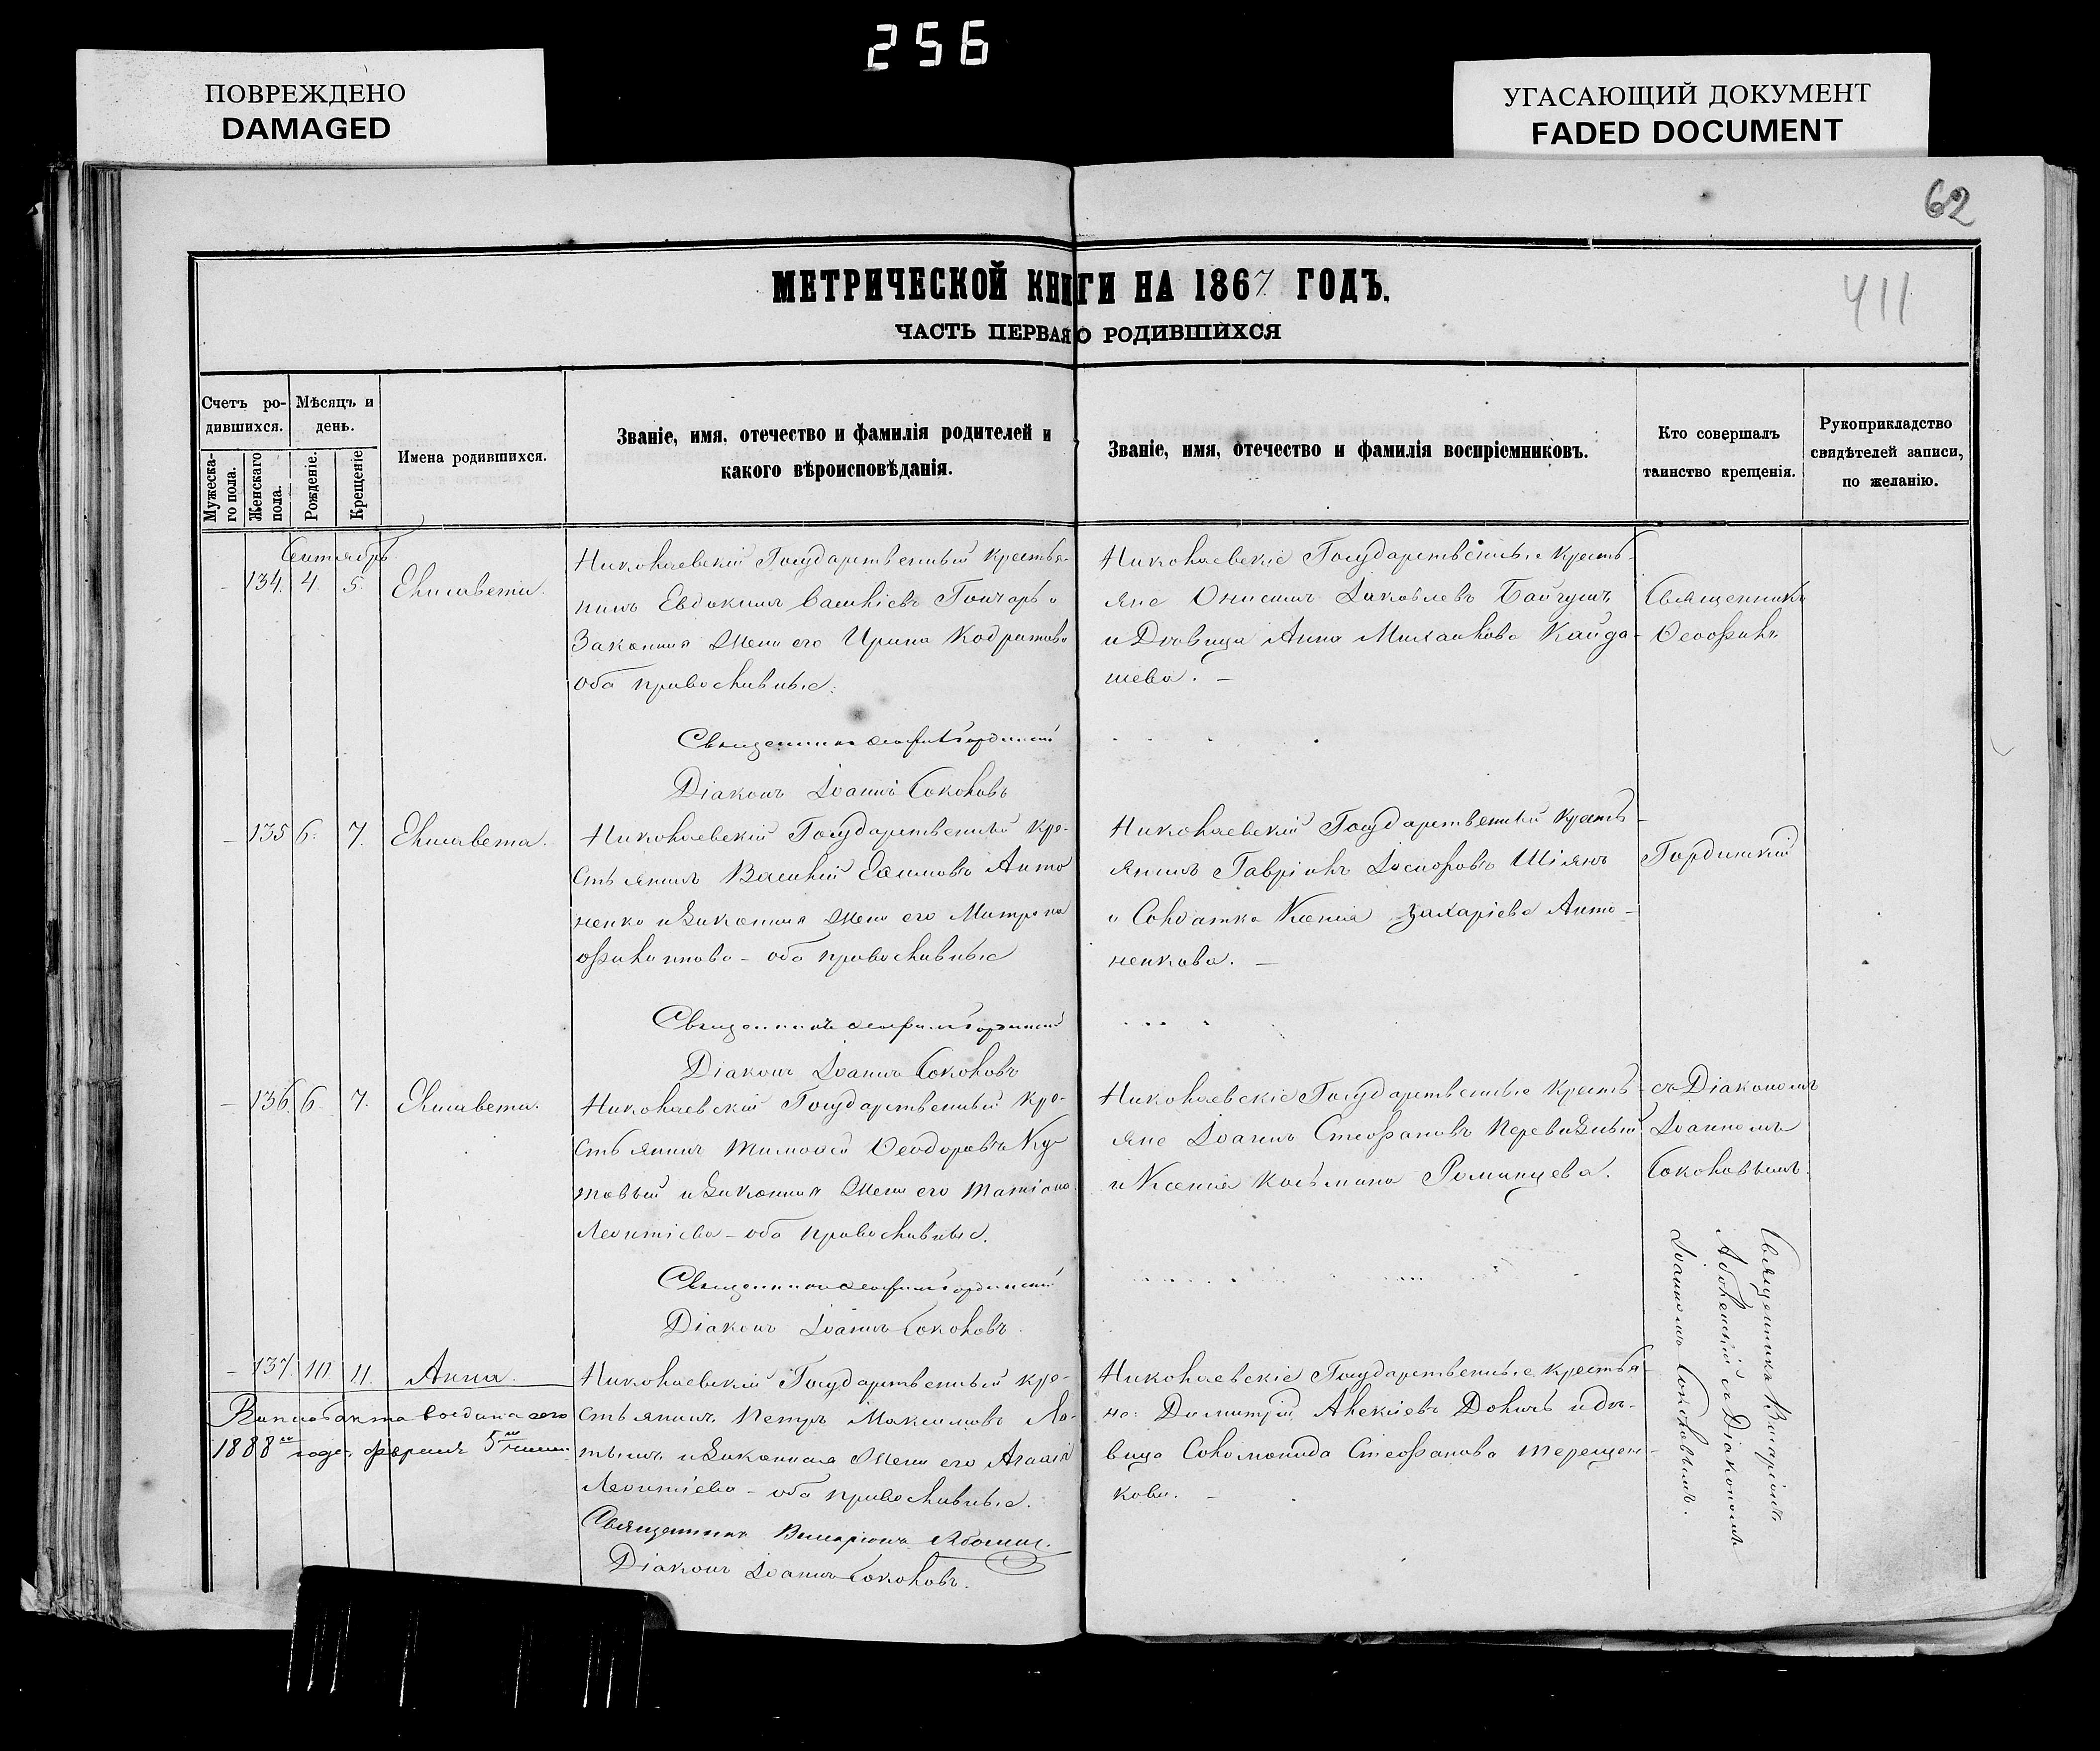 256
ПОВРЕЖДЕНО
DAMAGED
УГАСАЮЩИЙ ДОКУМЕНТ
FADED DOCUMENT
62
411
МЕТРИЧЕСКОЙ КНИГИ НА 1867 ГОДЪ.
ЧАСТЬ ПЕРВАЯ О РОДИВШИХСЯ
Счетъ ро-
дившихся.
Мужеска-
го пола.
Женскаго
пола.
Мѣсяцъ и
день.
Рожденіе.
Крещеніе
Имена родившихся.
Званіе, имя, отечество и фамилія родителей и
какого вѣроисповѣданія.
Званіе, имя, отечество и фамилія воспріемниковъ.
Кто совершалъ
таинство крещенія.
Рукоприкладство
свидѣтелей записи,
по желанію.
Сентябрь
- 134. 4. 5. Елисавета.
Николаевскій Государственный крестья-
нинъ Евдокимъ Васильевъ Гончаръ и
Законная Жена его Ирина Кодратова
оба православные.
Священникъ Ѳеофилъ Гординскій
Діаконъ Іоаннъ Соколовъ
Николаевскіе Государственные кресть-
яне Онисимъ Іаковлевъ Байгушъ
и Дѣвица Анна Михайлова Кайда-
шева. -
Священникъ
Ѳеофилъ
- 135 6. 7. Елисавета.
Николаевскій Государственный кре-
стьянинъ Василій Евѳимовъ Анто
ненко и Законная Жена его Матрона
Филиппова - оба православные
Священникъ Ѳеофилъ Гординскій
Діаконъ Іоаннъ Соколовъ
Николаевскій Государственный кресть-
янинъ Гавріилъ Іосифовъ Шіянъ
и Солдатка Ксенія Захаріева Анто-
ненкова. -
Гординскій
- 136. 6. 7. Елисавета.
Николаевскій Государственный кре-
стьянинъ Тимоѳей Ѳеодоровъ Ку
товый и Законная Жена его Татіана
Леонтіева - оба православные.
Священникъ Ѳеофилъ Гординскій
Діаконъ Іоаннъ Соколовъ
Николаевскіе Государственные кресть-
яне Іоаннъ Стефановъ Перевизный
и Ксенія Косьмина Романцева.
съ Діакономъ
Іоанномъ
Соколовымъ.
- 137. 10. 11. Анна.
1888 года
Николаевскій Государственный кре-
стьянинъ Петръ Максимовъ Ла-
тышъ и Законная Жена его Агаѳія
Леонтіева - оба православные.
Священникъ
Діаконъ Іоаннъ Соколовъ.
Николаевскіе Государственные крестья-
не: Димитрій Алексіевъ Долинъ и дѣ-
вица Соломонида Стефанова Терещен-
кова. -
Священникъ
съ Діакономъ
Іоанномъ Соколовымъ.